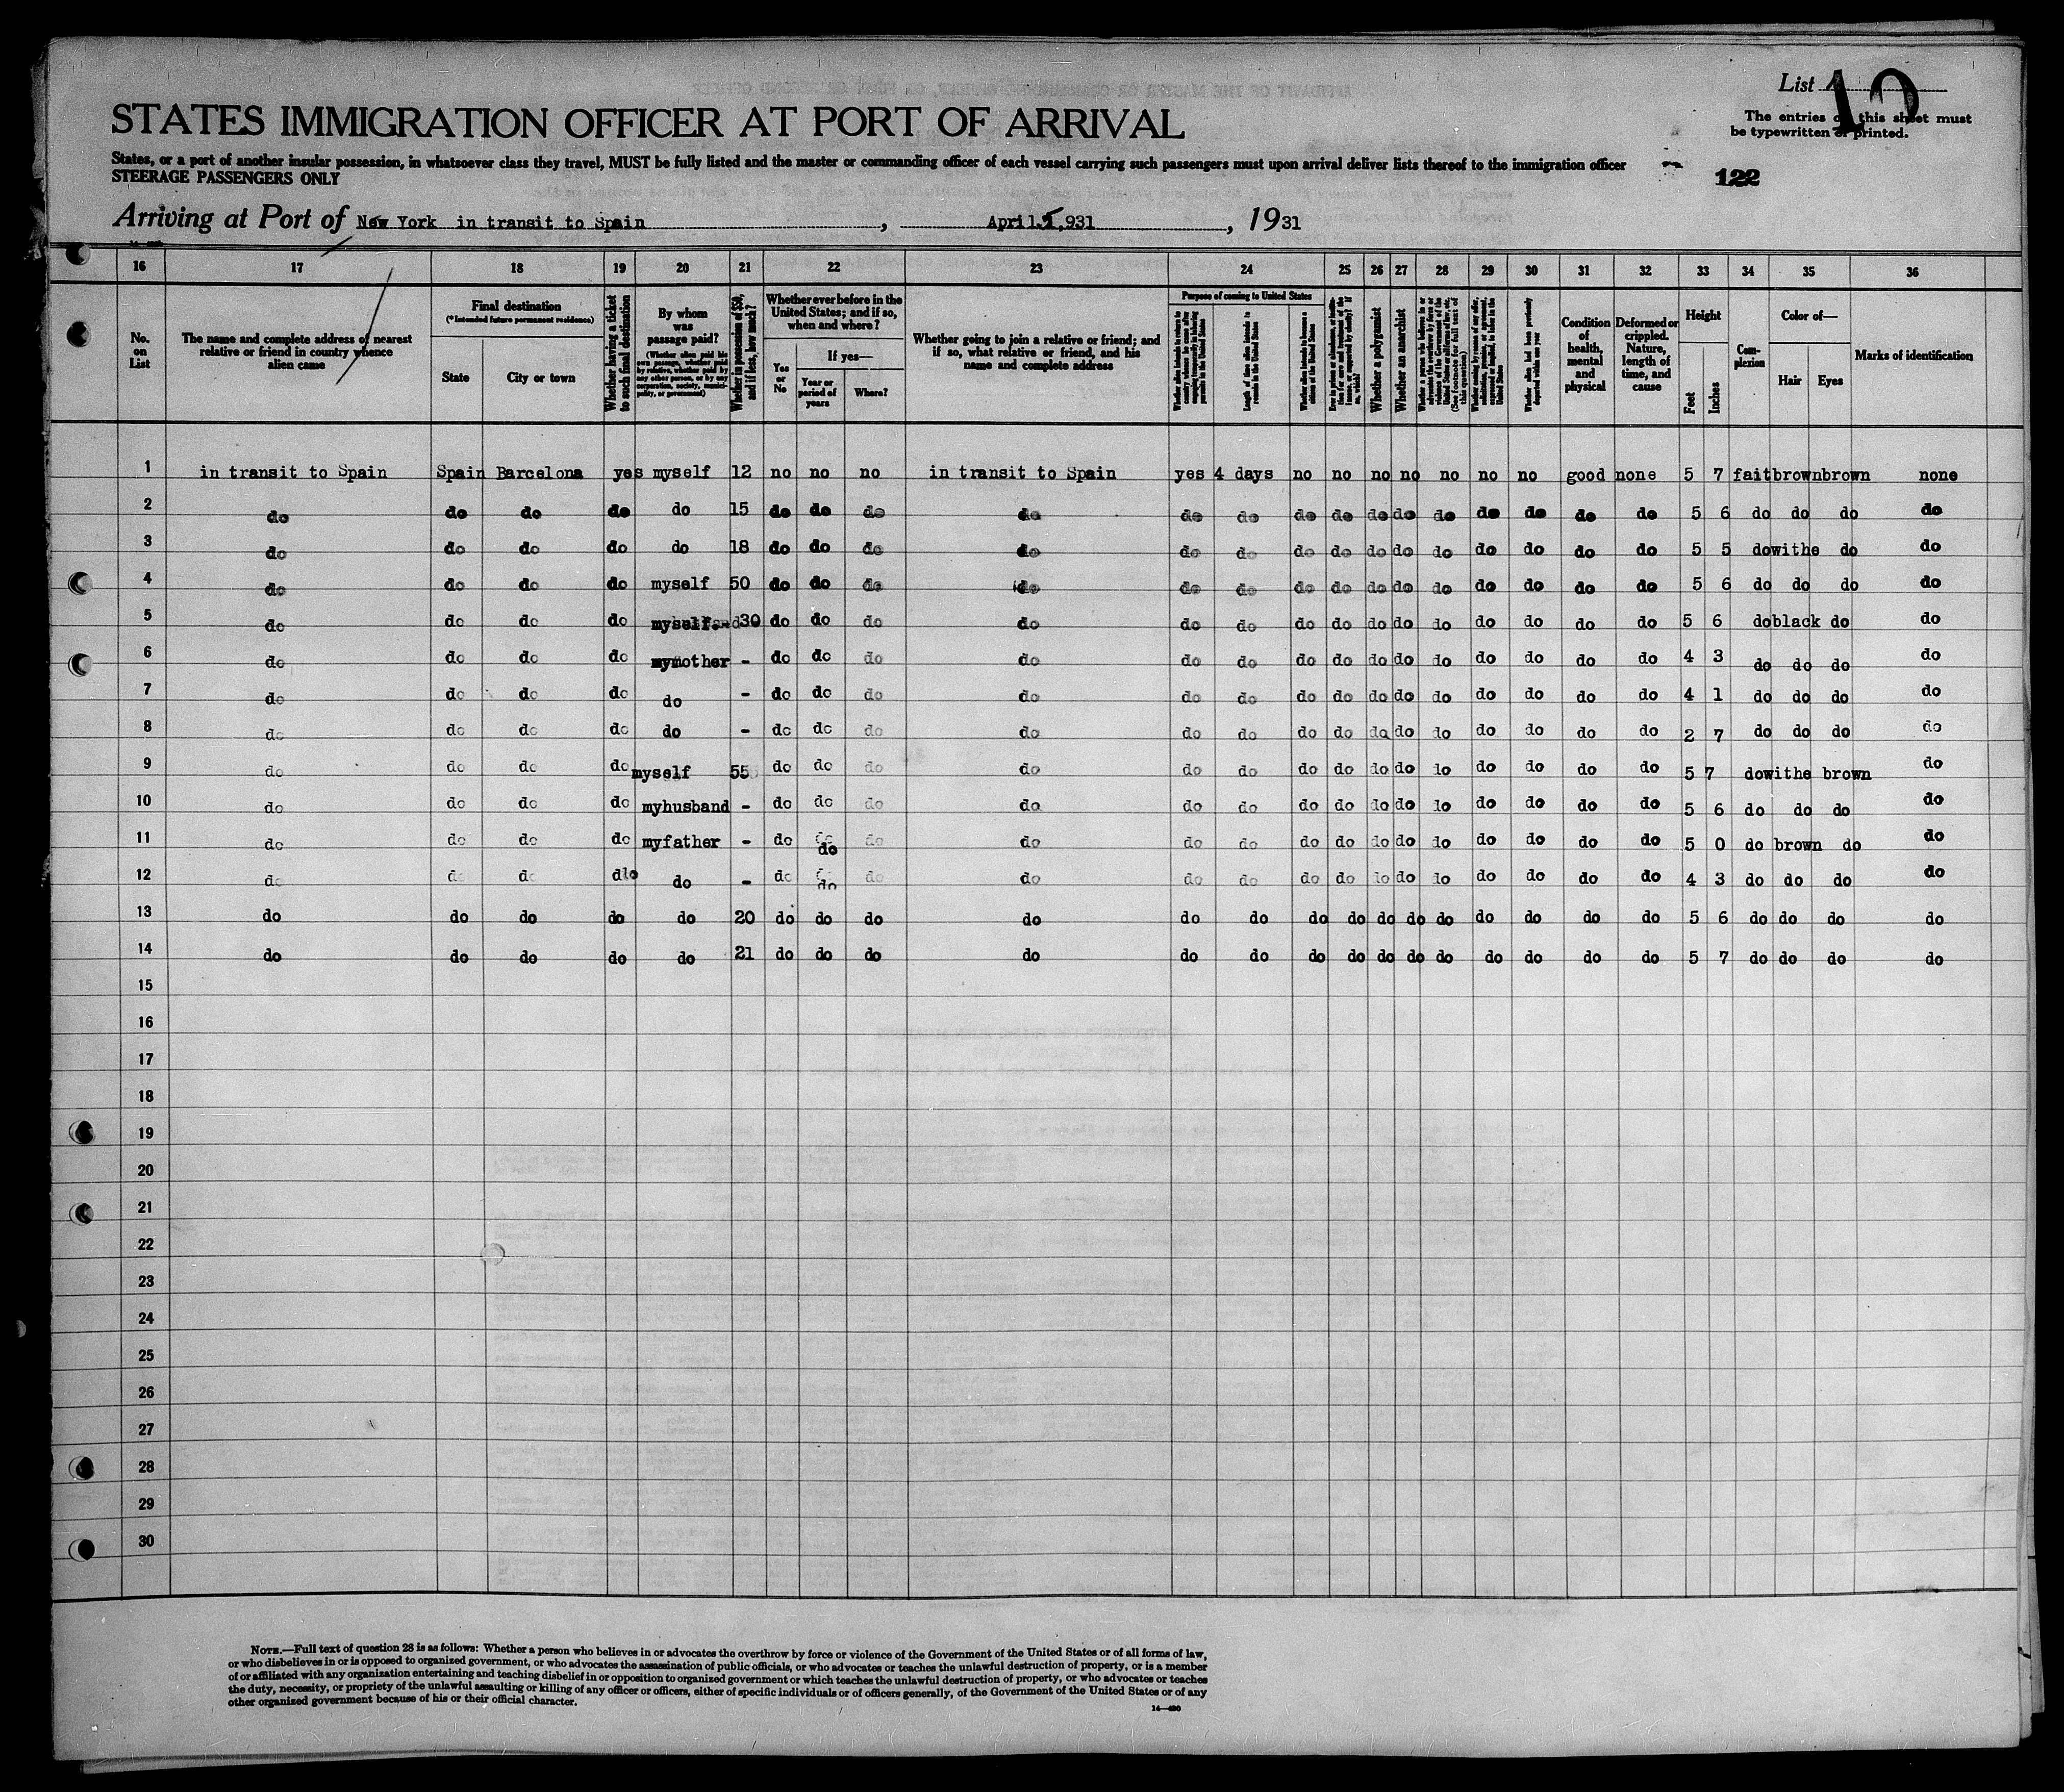 List 10
STATES IMMIGRATION OFFICER AT PORT OF ARRIVAL
The entries on this sheet must
be typewritten or printed.
States, or a port of another insular possession, in whatsoever class they travel, MUST be fully listed and the master or commanding officer of each vessel carrying such passengers must upon arrival deliver lists thereof to the immigration officer
STEERAGE PASSENGERS ONLY
122
Arriving at Port of New York in transit to Spain, April 5, 931, 1931
16 17 18 19 20 21 22 23 24 25 26 27 28 29 30 31 32 33 34 35 36
No. on List
The name and complete address of nearest relative or friend in country whence alien came
Final destination
(*Intended future permanent residence)
State
City or town
Whether having a ticket to such final destination
By whom was passage paid?
(Whether alien paid his own passage, whether paid by relative, whether paid by any other person, or by any corporation, society, municipality, or government)
Whether in possession of $50, and if less, how much?
Whether ever before in the United States; and if so, when and where?
Yes or No
If yes—
Year or period of years
Where?
Whether going to join a relative or friend; and if so, what relative or friend, and his name and complete address
Purpose of coming to United States
Length of time alien intends to remain in the United States
Whether alien intends to become a citizen of the United States
Whether a polygamist
Whether an anarchist
Whether alien had been previously deported within one year
Condition of health, mental and physical
Deformed or crippled. Nature, length of time, and cause
Height
Feet
Inches
Complexion
Color of—
Hair
Eyes
Marks of identification
1 in transit to Spain Spain Barcelona yes myself 12 no no no in transit to Spain yes 4 days no no no no no no no good none 5 7 fait brown brown none
2 do do do do do 15 do do do do do do do do do do do do do do do 5 6 do do do do
3 do do do do do 18 do do do do do do do do do do do do do do do 5 5 do withe do do
4 do do do do myself 50 do do do do do do do do do do do do do do do 5 6 do do do do
5 do do do do myself 30 do do do do do do do do do do do do do do do 5 6 do black do do
6 do do do do mymother - do do do do do do do do do do do do do do do 4 3 do do do do
7 do do do do do - do do do do do do do do do do do do do do do 4 1 do do do do
8 do do do do do - do do do do do do do do do do do do do do do 2 7 do do do do
9 do do do do myself 55 do do do do do do do do do do do do do do do 5 7 do withe brown do
10 do do do do myhusband - do do do do do do do do do do do do do do do 5 6 do do do do
11 do do do do myfather - do do do do do do do do do do do do do do do 5 0 do brown do do
12 do do do do do - do do do do do do do do do do do do do do do 4 3 do do do do
13 do do do do do 20 do do do do do do do do do do do do do do do 5 6 do do do do
14 do do do do do 21 do do do do do do do do do do do do do do do 5 7 do do do do
15
16
17
18
19
20
21
22
23
24
25
26
27
28
29
30
NOTE.—Full text of question 28 is as follows: Whether a person who believes in or advocates the overthrow by force or violence of the Government of the United States or of all forms of law,
or who disbelieves in or is opposed to organized government, or who advocates the assassination of public officials, or who advocates or teaches the unlawful destruction of property, or is a member
of or affiliated with any organization entertaining and teaching disbelief in or opposition to organized government or which teaches the unlawful destruction of property, or who advocates or teaches
the duty, necessity, or propriety of the unlawful assaulting or killing of any officer or officers, either of specific individuals or of officers generally, of the Government of the United States or of any
other organized government because of his or their official character.
14—480